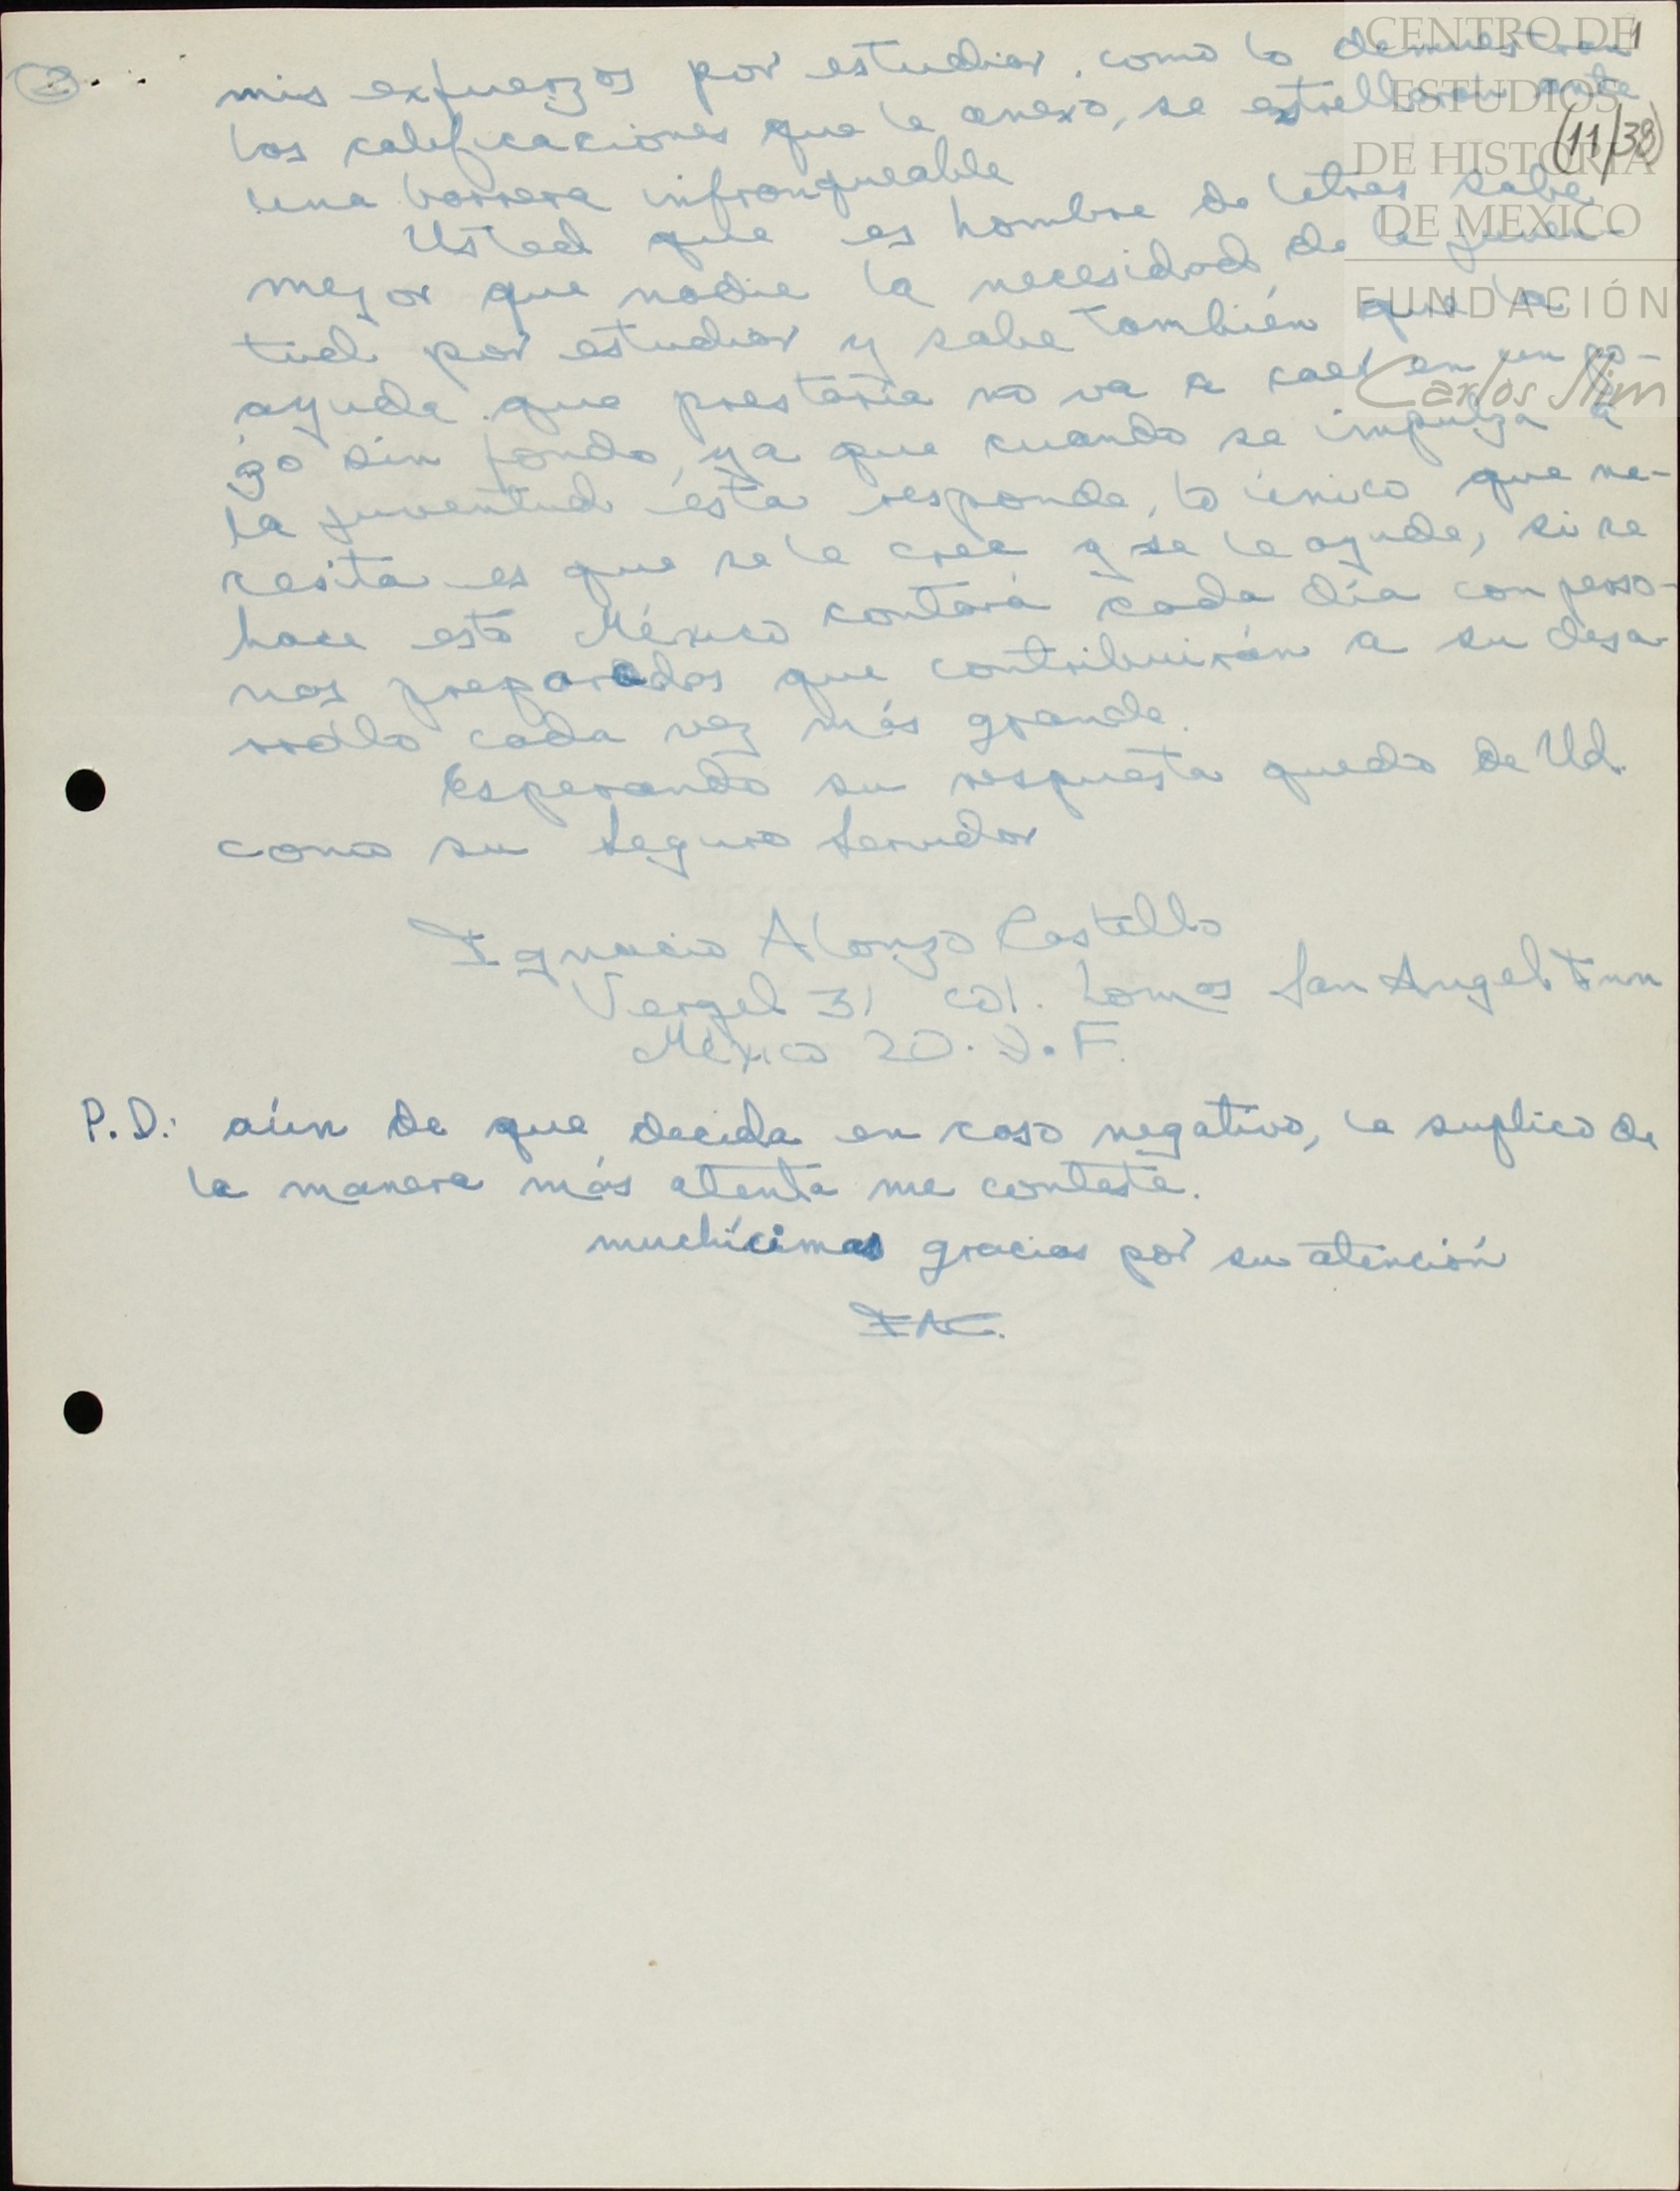 mis exfuerzos por estudiar, como lo demuestran
las calificaciones que le anexo, se estrellaran ante
una barrera infranqueable
Usted que es hombre de letras sabe
mejor que nadie la necesidad de la juven-
tud por estudiar y sabe también que la
ayuda que prestaria no va a caer en un po-
zo sin fondo, ya que cuando se impulza a
la juventud ésta responde, lo único que ne-
cesita es que se le crea y se le ayude, si se
hace esto México contará cada día con perso-
nas preparadas que contribuirán a su desa-
rrollo cada vez más grande.
Esperando su respuesta quedo de Ud.
como su Seguro Servidor
Ignacio Alonzo Castillo
Vergel 31 col. Lomas San Angel Inn
México 20. D.F.
P.D.: aún de que decida en caso negativo, le suplico de
la manera más atenta me conteste.
muchícimas gracias por su atención
IAC.
(11/38)
CENTRO DE
ESTUDIOS
DE HISTORIA
DE MEXICO
FUNDACIÓN
Carlos Slim